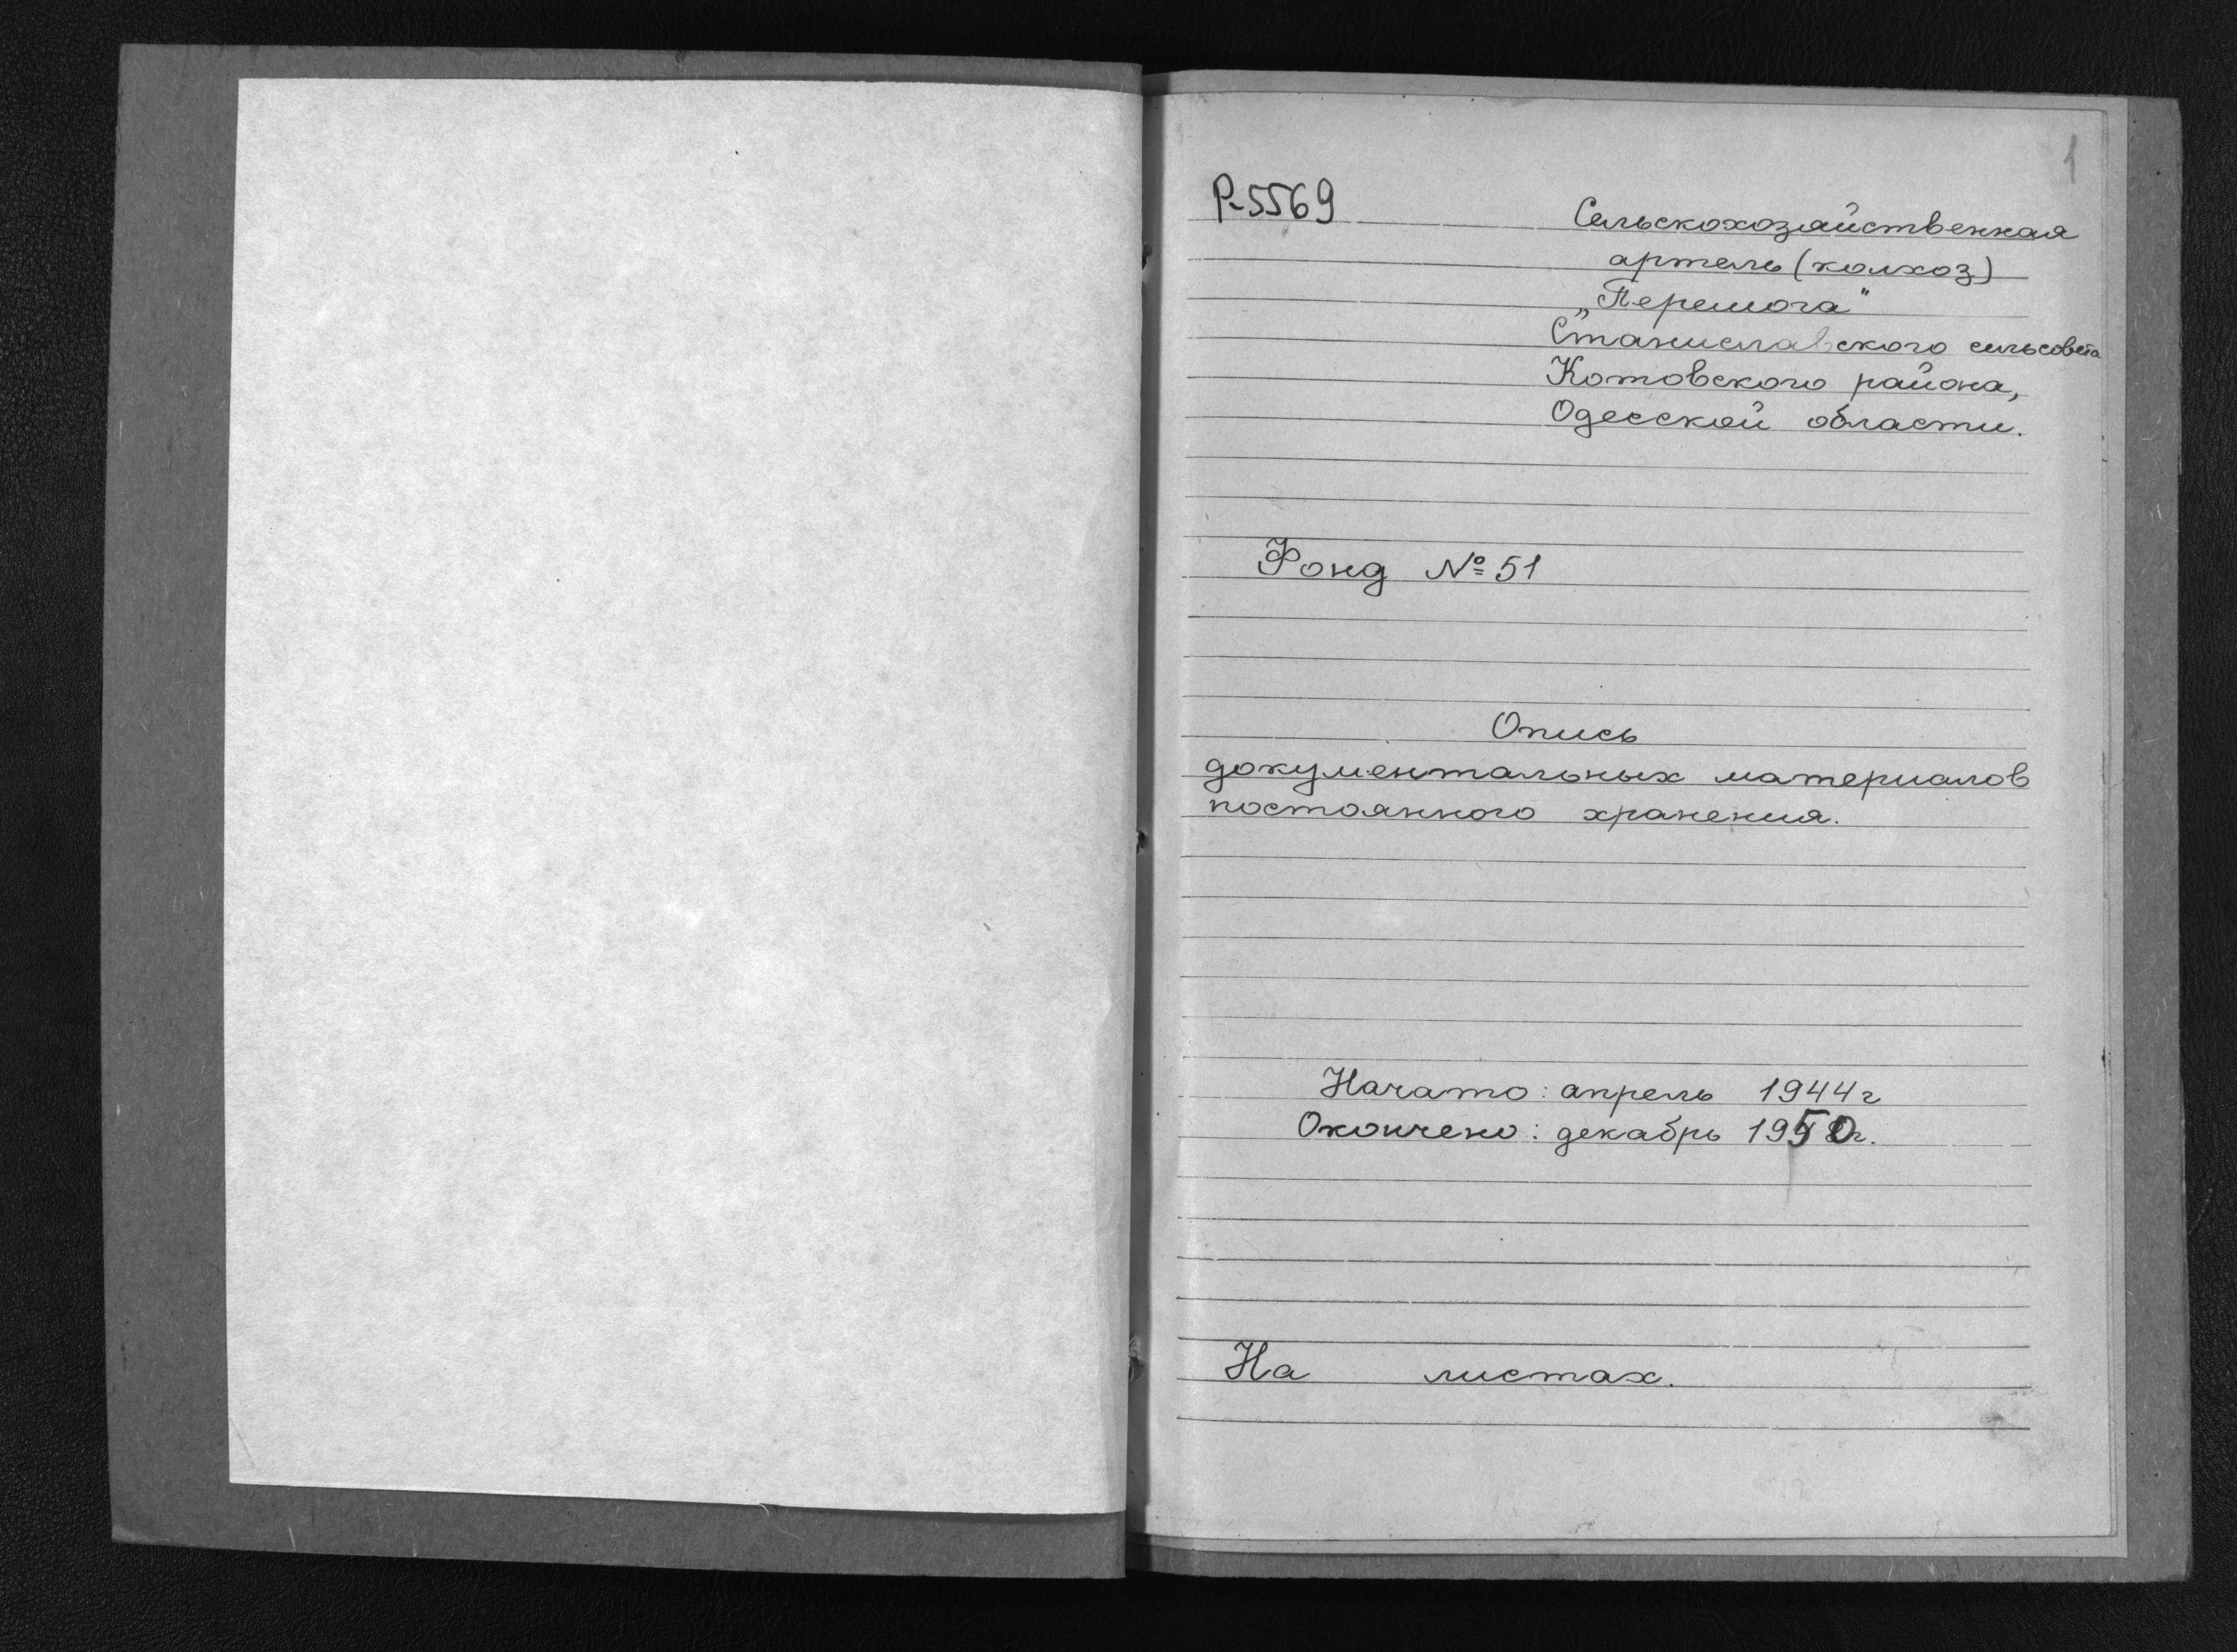 1
Р-5569
Сельскохозяйственная
артель (колхоз)
„Перемога"
Станиславского сельсовета
Котовского района,
Одесской области.
Фонд № 51
Опись
документальных материалов
постоянного хранения.
Начато: апрель 1944г
Окончено: декабрь 1950г.
На листах.